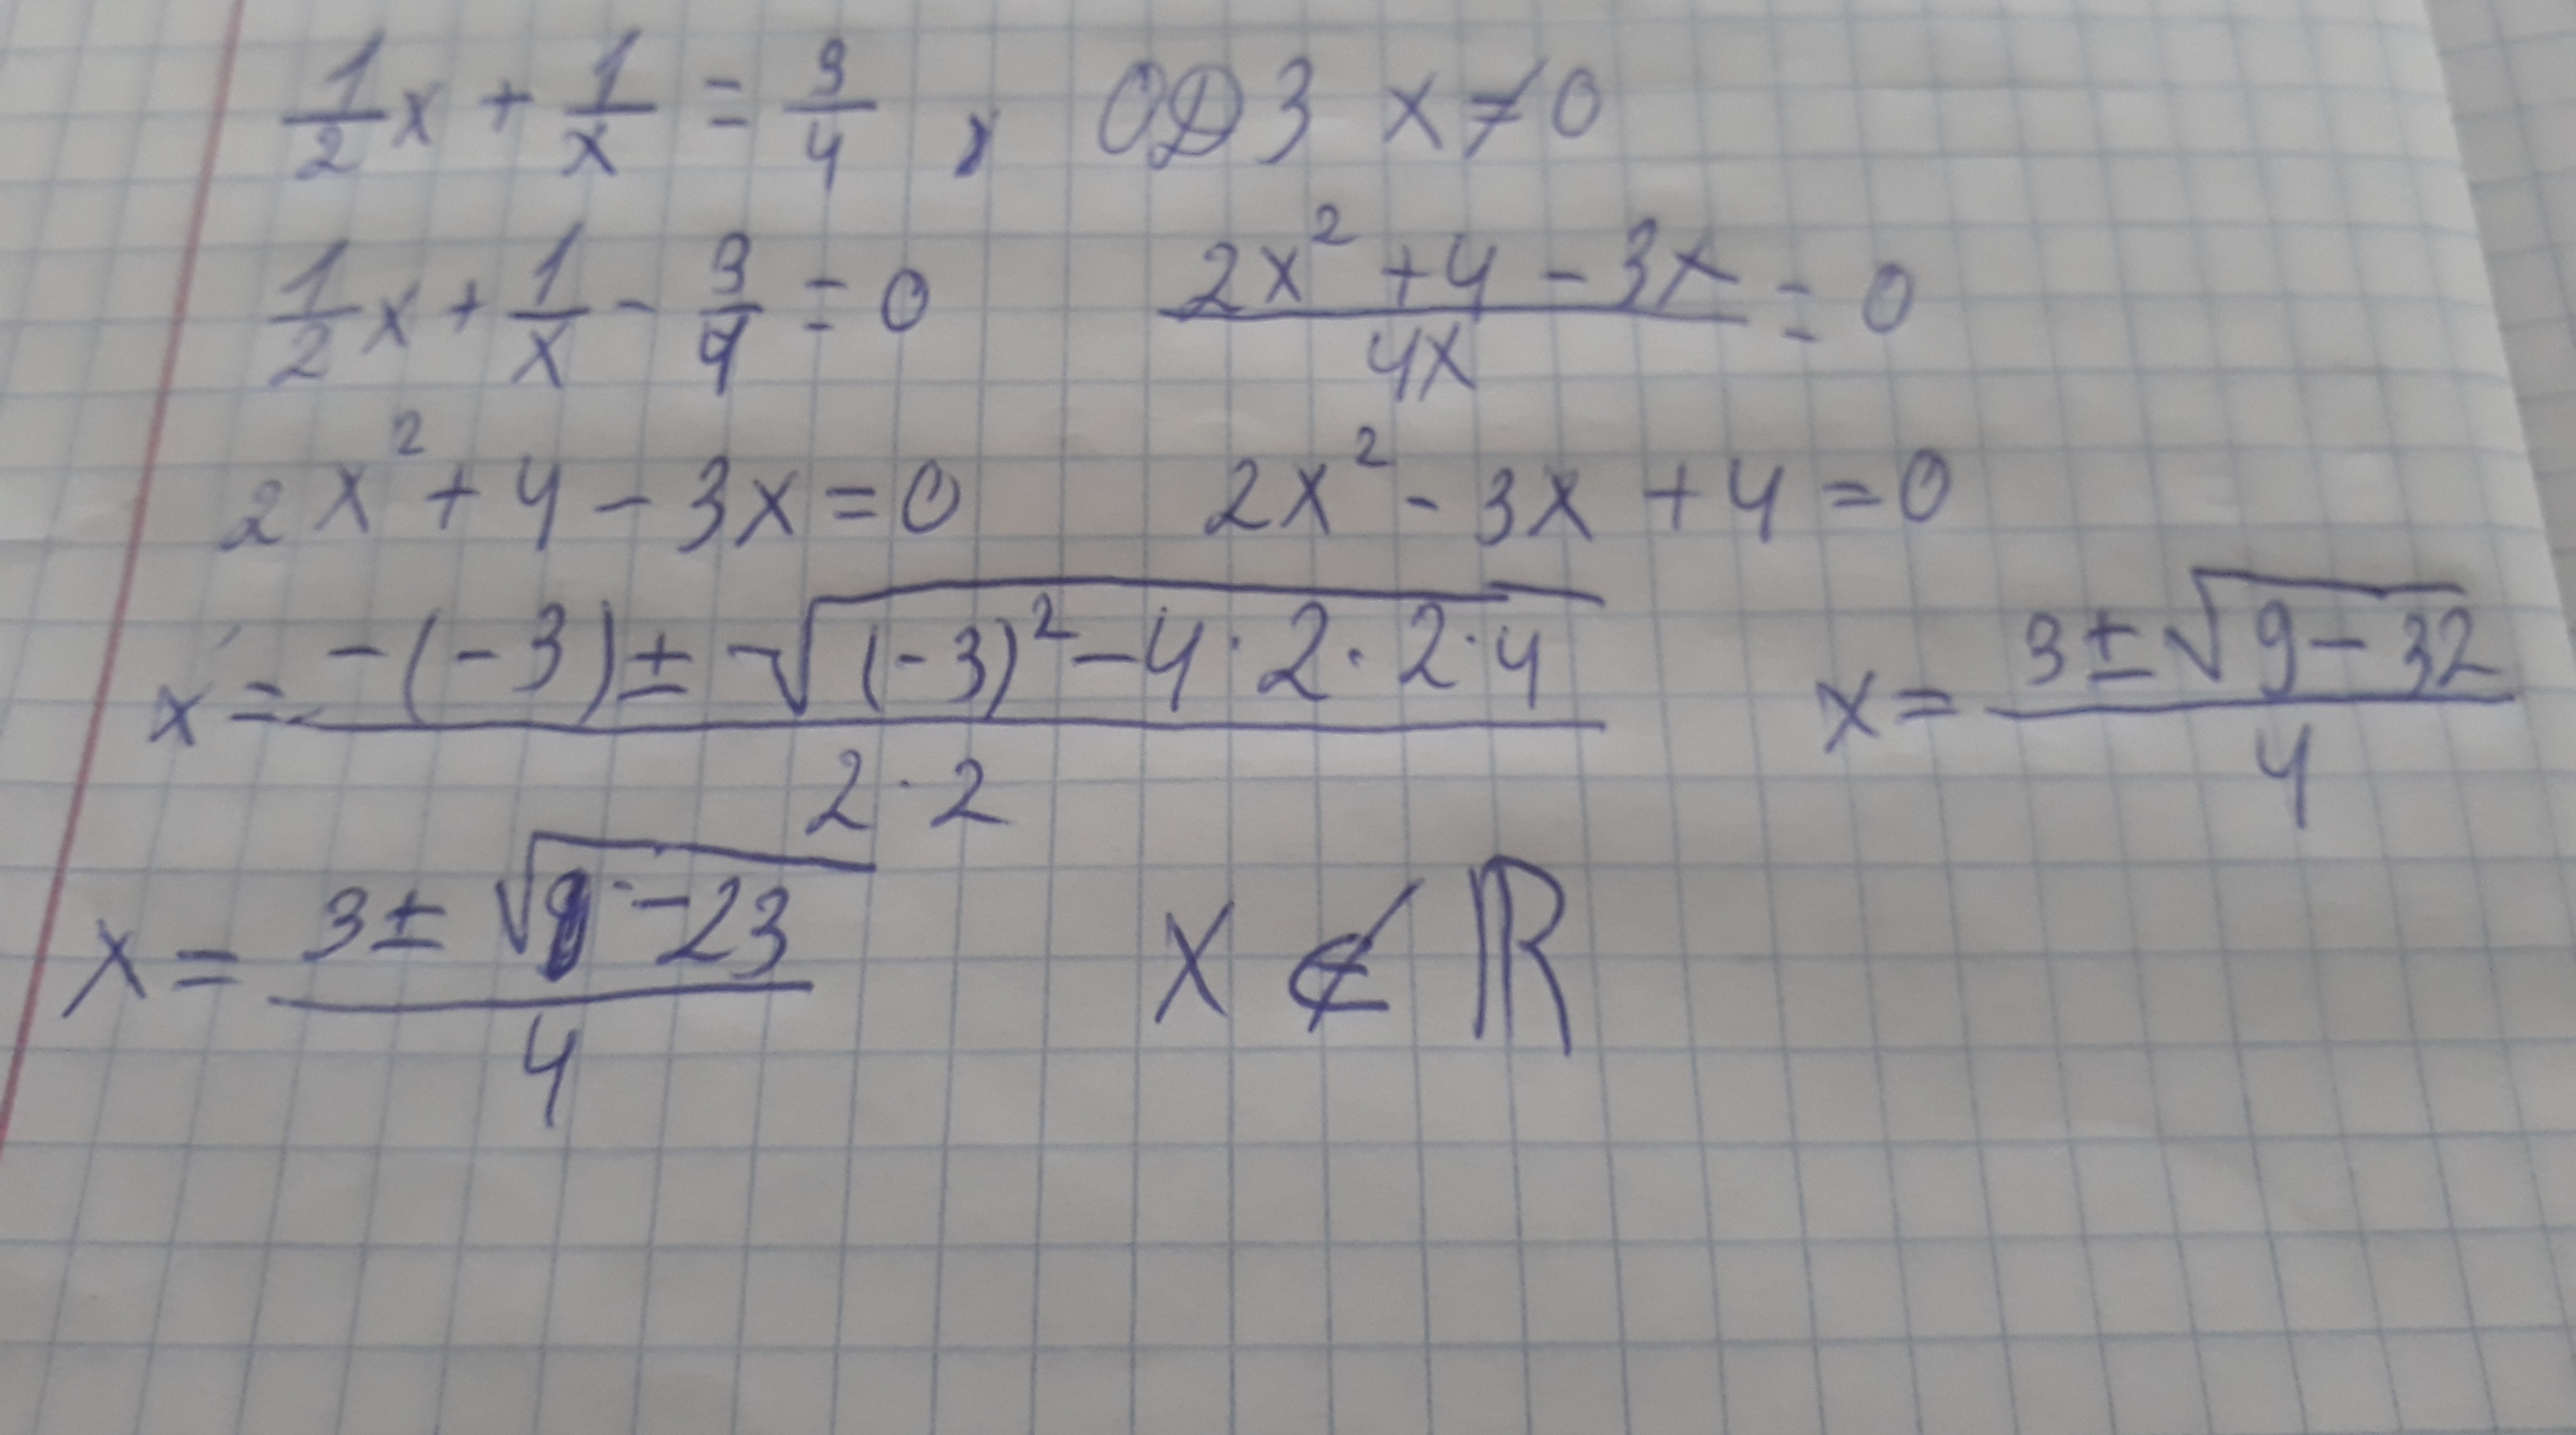 1/2 x + 1/x = 3/4 , ОДЗ x ≠ 0
1/2 x + 1/x - 3/4 = 0 (2x² + 4 - 3x)/4x = 0
2x² + 4 - 3x = 0 2x² - 3x + 4 = 0
x = (-(-3) ± √((-3)² - 4·2·2·4))/(2·2) x = (3 ± √(9 - 32))/4
x = (3 ± √(-23))/4 x ∉ ℝ